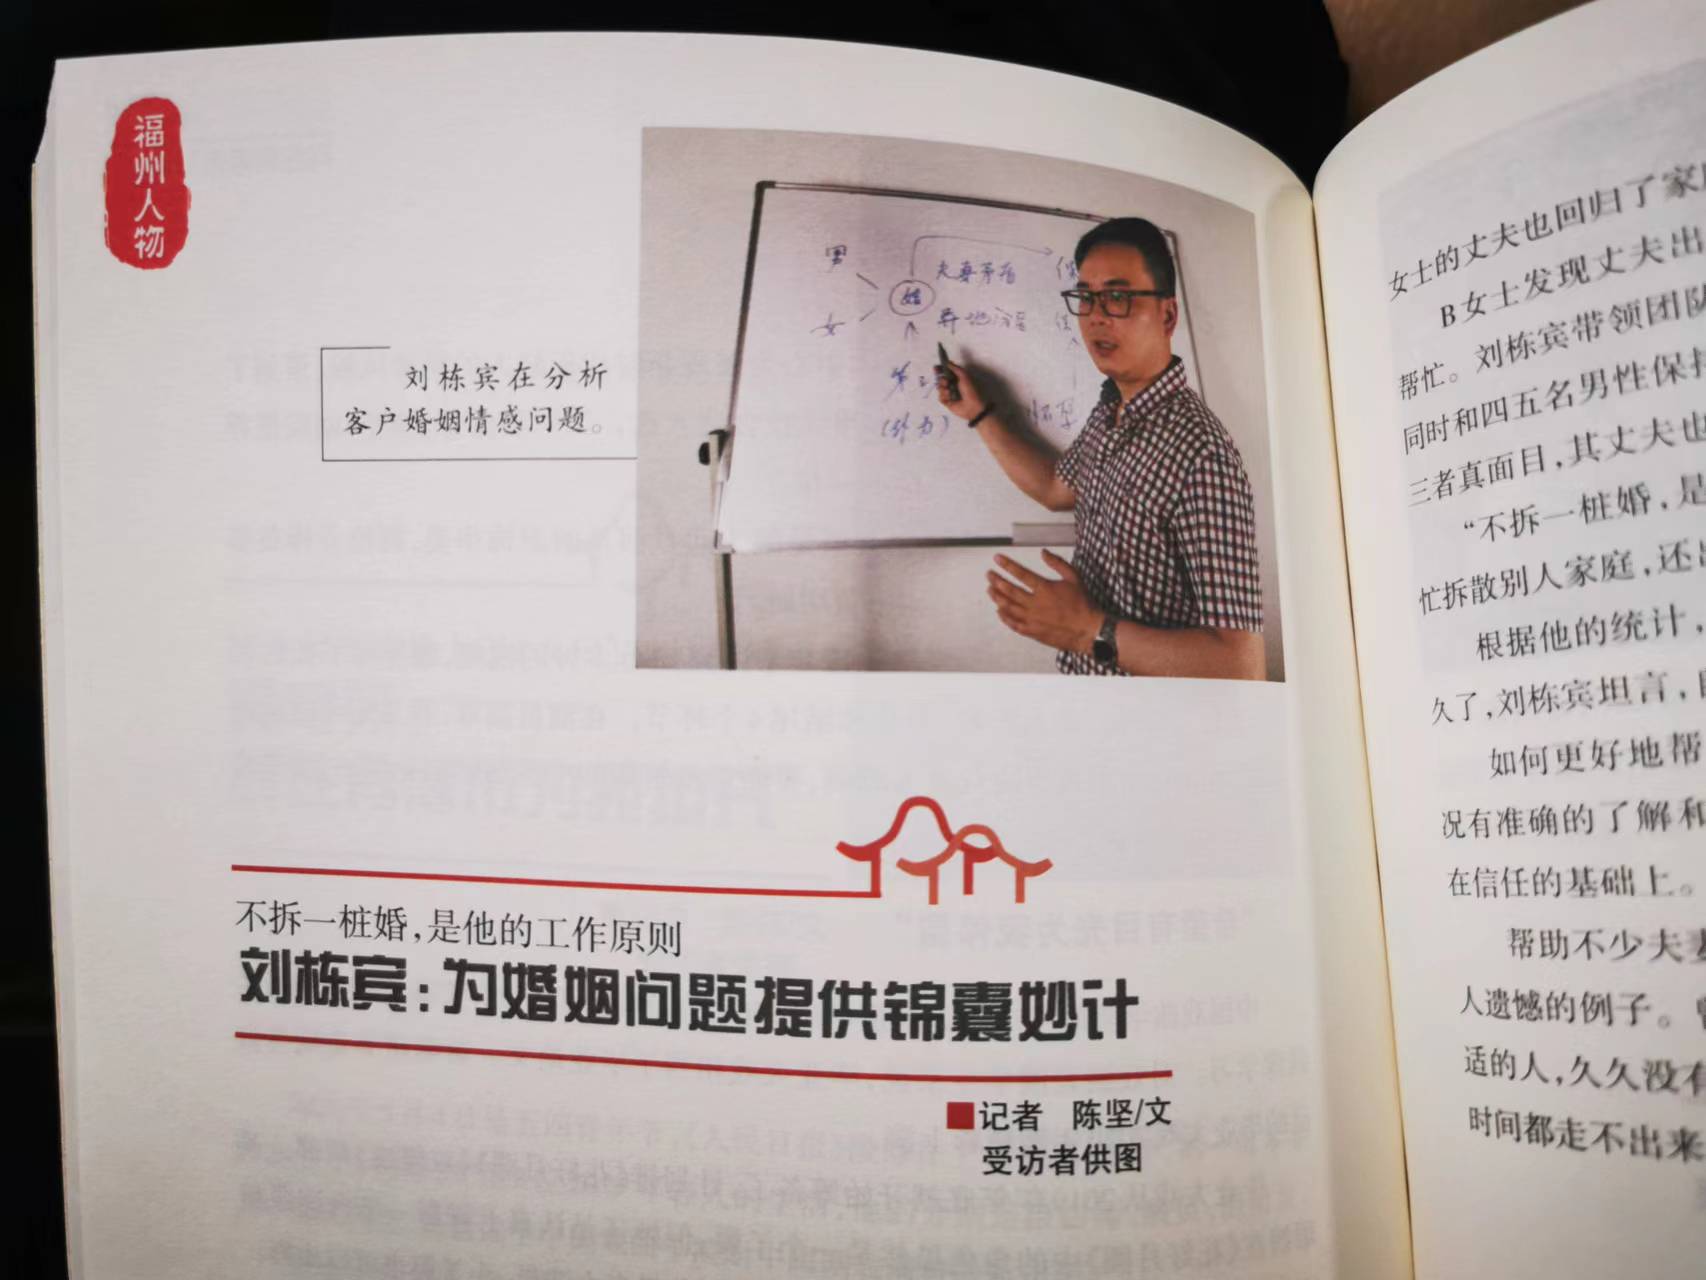 福州人物
男
女
婚
夫妻矛盾
异地分居
第三
(外力)
怀孕
刘栋宾在分析
客户婚姻情感问题。
不拆一桩婚,是他的工作原则
刘栋宾:为婚姻问题提供锦囊妙计
■记者 陈坚/文
受访者供图
女士的丈夫也回归了家
B女士发现丈夫出
帮忙。刘栋宾带领团队
同时和四五名男性保持
三者真面目,其丈夫也
“不拆一桩婚,是
忙拆散别人家庭,还
根据他的统计,
久了,刘栋宾坦言,
如何更好地帮
况有准确的了解和
在信任的基础上。
帮助不少夫妻
人遗憾的例子。曾
适的人,久久没有
时间都走不出来